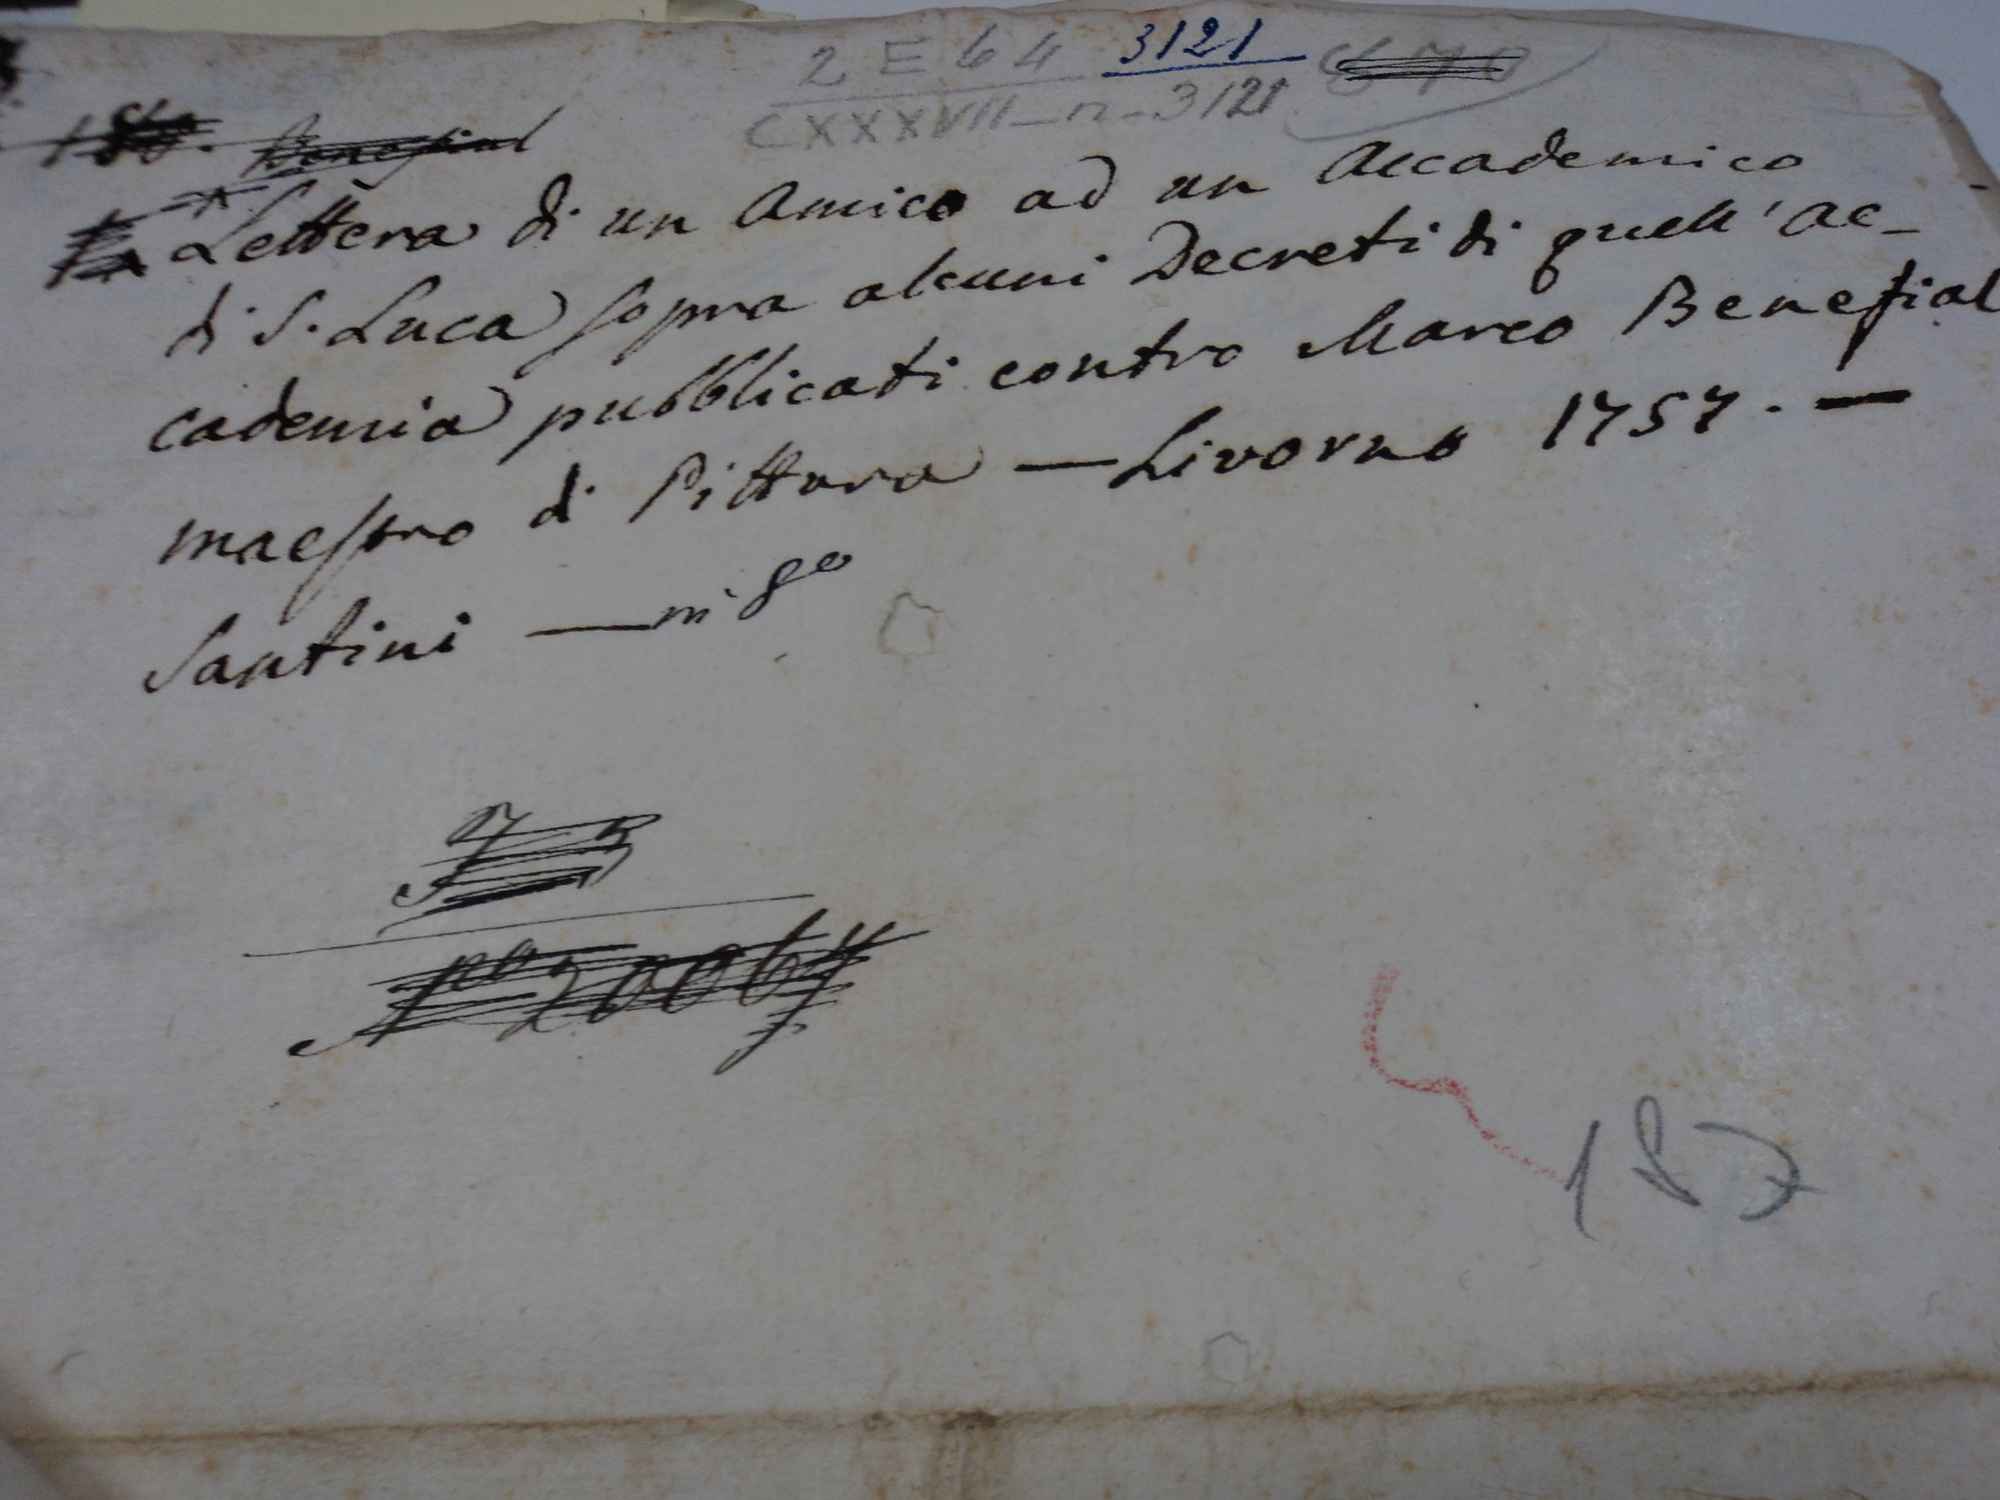 2 E 64 3121
CXXXVII-n-3121
Benefial
Lettera di un Amico ad un Accademico
di S. Luca sopra alcuni Decreti di quell'Ac-
cademia pubblicati contro Marco Benefial
maestro di Pittura — Livorno 1757. —
Santini — in 8º
75
20067
187